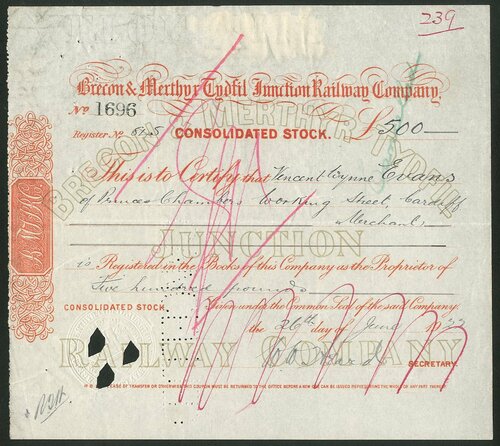 239
Brecon & Merthyr Tydfil Junction Railway Company,
No 1696
£500
Register No
CONSOLIDATED STOCK.
BRECON & MERTHYR TYDFIL
This is to Certify that Vincent Wynne Evans
of Princes Chambers Working Street, Cardiff
Merchant,
JUNCTION
is Registered in the Books of this Company as the Proprietor of
Five hundred pounds
CONSOLIDATED STOCK. Given under the Common Seal of the said Company
the 26th day of June 1922
RAILWAY COMPANY
SECRETARY.
N.B. IN CASE OF TRANSFER OR OTHERWISE THIS COUPON MUST BE RETURNED TO THE OFFICE BEFORE A NEW ONE CAN BE ISSUED REPRESENTING THE WHOLE OR ANY PART THEREOF.